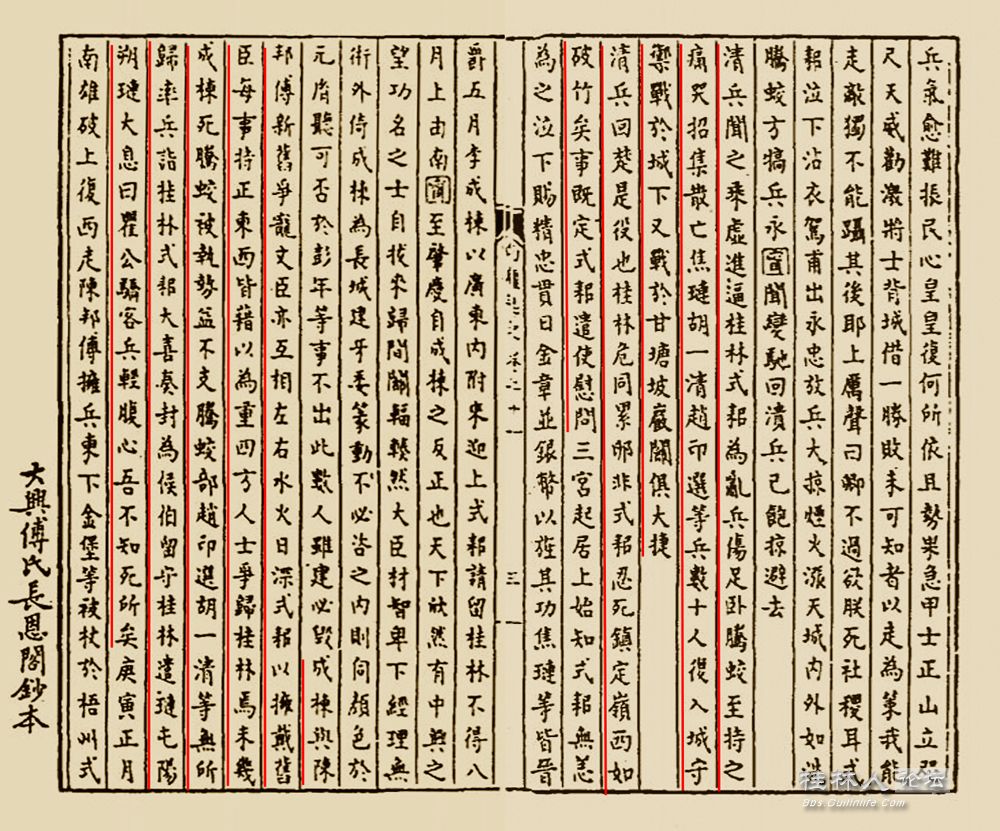 兵氣愈難振民心皇皇復何所依且勢果急甲士正山立咫
尺天威勸激將士背城借一勝敗未可知若以走為策我能
走敵獨不能躡其後耶上厲聲曰卿不過欲朕死社稷耳式
耜泣下沾衣駕甫出永忠放兵大掠煙火漲天城內外如洗
騰蛟方犒兵永寧聞變馳回潰兵已飽掠避去
清兵聞之乘虛進逼桂林式耜為亂兵傷足卧騰蛟至持之
痛哭招集散亡焦璉胡一清趙印選等兵數十人復入城守
禦戰於城下又戰於甘塘坡嚴關俱大捷
清兵回楚是役也桂林危同累卵非式耜忍死鎮定嶺西如
破竹矣事既定式耜遣使慰問三宮起居上始知式耜無恙
為之泣下賜精忠貫日金章並銀幣以旌其功焦璉等皆晉
卷之十一
三
爵五月李成棟以廣東內附來迎上式耜請留桂林不得八
月上由南寧至肇慶自成棟之反正也天下欣然有中興之
望功名之士自拔來歸間關輻輳然大臣材智卑下經理無
術外倚成棟為長城建牙委篆動不必咨之內則伺顏色於
元胤聽可否於彭年等事不出此數人雖建必毀成棟與陳
邦傅新舊爭寵文臣亦互相左右水火日深式耜以擁戴舊
臣每事持正東西皆藉以為重四方人士爭歸桂林焉未幾
成棟死騰蛟被執勢益不支騰蛟部趙印選胡一清等無所
歸率兵詣桂林式耜大喜奏封為侯伯留守桂林遣璉屯陽
朔璉大息曰瞿公驕客兵輕腹心吾不知死所矣庚寅正月
南雄破上復西走陳邦傅擁兵東下金堡等被杖於梧州式
大興傅氏長恩閣鈔本
桂林人论坛
Bbs.Guilinlife.Com